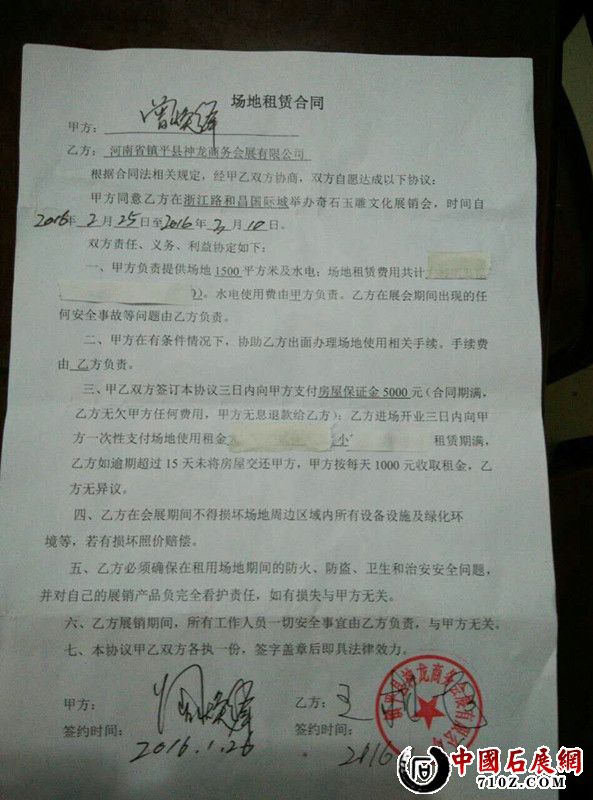 场地租赁合同
甲方：
乙方：河南省镇平县神龙商务会展有限公司
根据合同法相关规定，经甲乙双方协商，双方自愿达成以下协议：
甲方同意乙方在浙江路和昌国际城举办奇石玉雕文化展销会，时间自
2016年2月25日至2016年3月10日。
双方责任、义务、利益协定如下：
一、甲方负责提供场地1500平方米及水电；场地租赁费用共计
）。水电使用费由甲方负责。乙方在展会期间出现的任
何安全事故等问题由乙方负责。
二、甲方在有条件情况下，协助乙方出面办理场地使用相关手续。手续费
由 乙方负责。
三、甲乙双方签订本协议三日内向甲方支付房屋保证金5000元（合同期满，
乙方无欠甲方任何费用，甲方无息退款给乙方）；乙方进场开业三日内向甲
方一次性支付场地使用租金 小 租赁期满，
乙方如逾期超过15天未将房屋交还甲方，甲方按每天1000元收取租金，乙
方无异议。
四、乙方在会展期间不得损坏场地周边区域内所有设备设施及绿化环
境等，若有损坏照价赔偿。
五、乙方必须确保在租用场地期间的防火、防盗、卫生和治安安全问题，
并对自己的展销产品负完全看护责任，如有损失与甲方无关。
六、乙方展销期间，所有工作人员一切安全事宜由乙方负责，与甲方无关。
七、本协议甲乙双方各执一份，签字盖章后即具法律效力。
甲方：
乙方：王
签约时间：
签约时间：
2016.1.26
2016
镇平县神龙商务会展有限公司
中國石展網
71OZ.COM